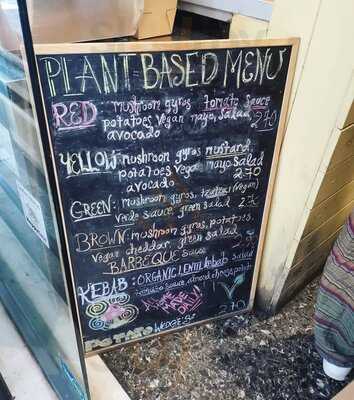 PLANT BASED MENU
RED: mushroom gyros tomato sauce
potatoes vegan mayo, salad 2.70
avocado
YELLOW mushroom gyros mustard
potatoes vega mayo salad
avocado 2.70
GREEN: mushroom gyros, (vegan)
verde sauce, green salad
BROWN: mushroom gyros, potatoes,
vegan cheddar green salad
BARBEQUE sauce
KEBAB: ORGANIC LENTIL kebab salad
tomato sauce, potato
HOME MADE DAILY
2.70
POTATO WEDGES